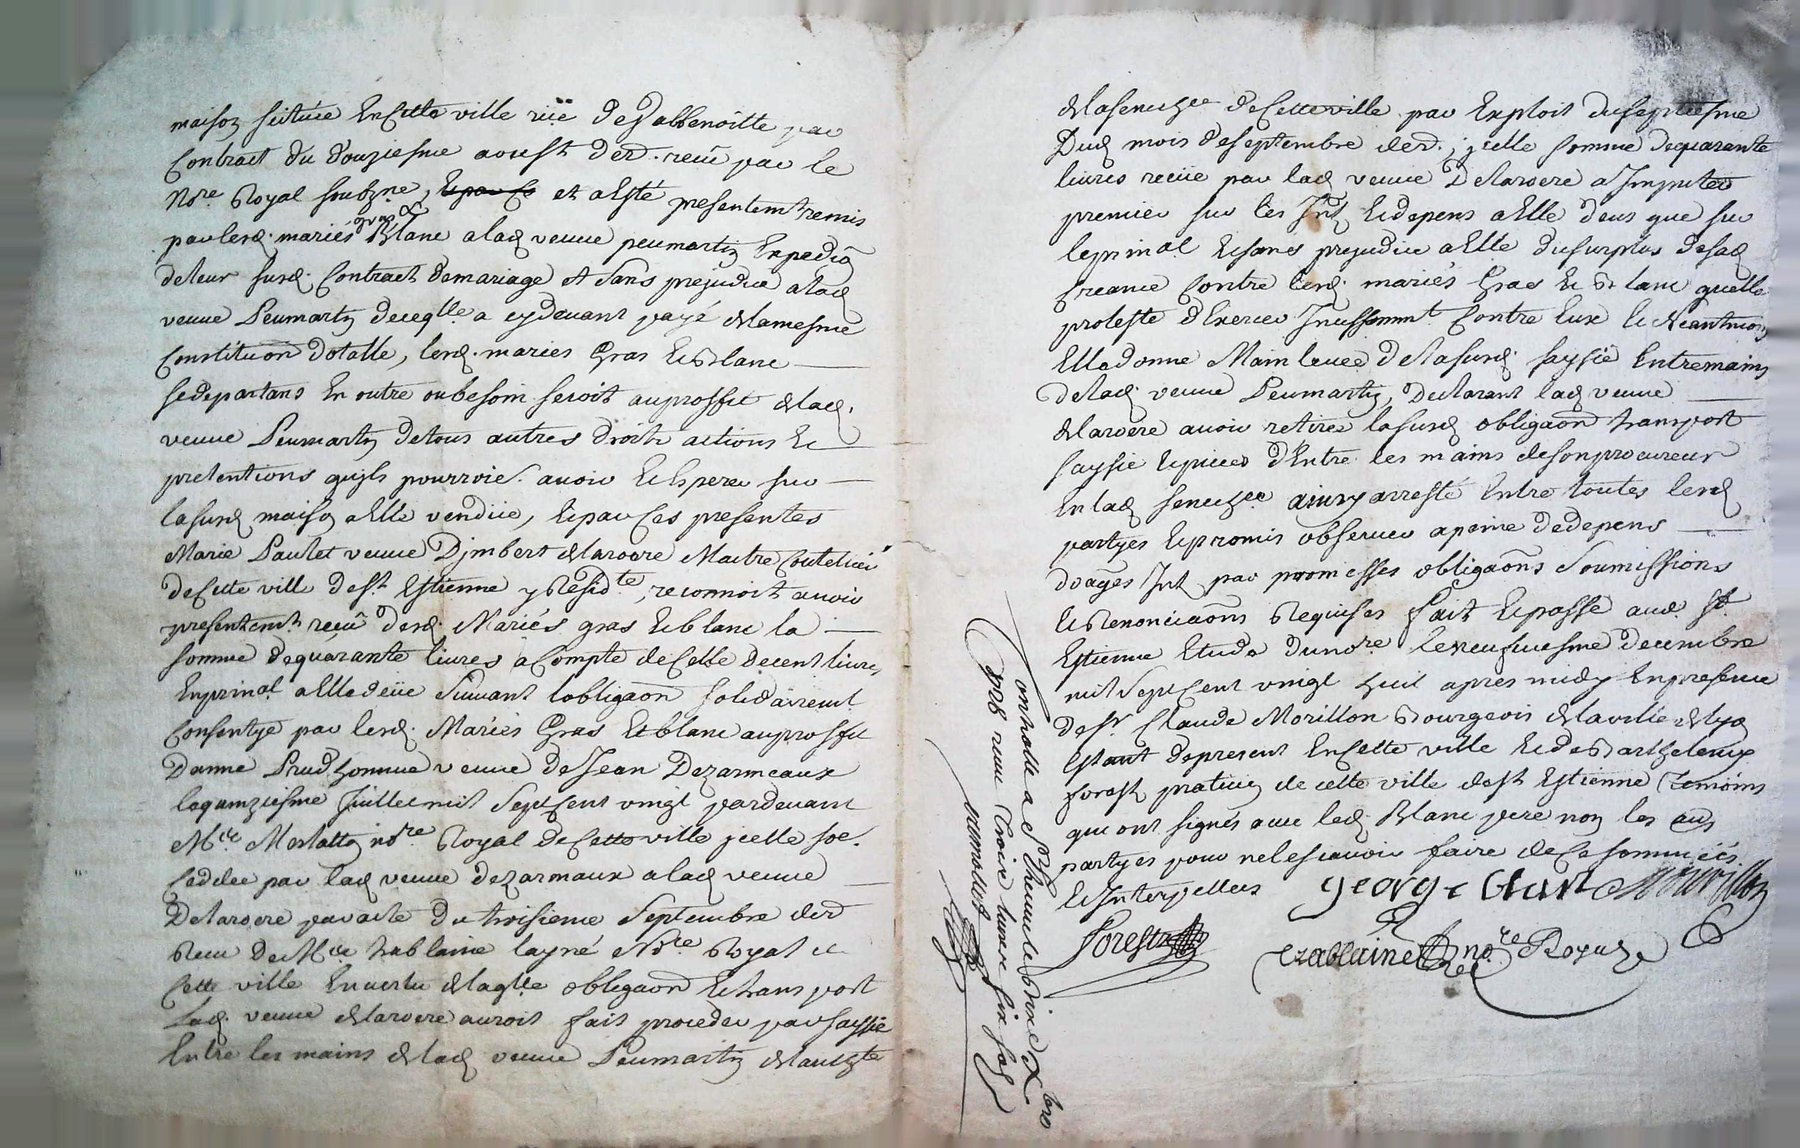 maison scitüée En Cette ville rüe de Vallenoitte par
Contract du douziesme aoust der. receu par le
No.re Royal soubz.ne, Et par Ce et a Esté presentemt remis
par lesd. mariés gras & Blanc a lad veuve peumartin Expedi͠on
de leur susd. Contract de mariage et sans prejudice a lad
veuve Peumartin de ceq.lle a cy devant payé de la mesme
Constitu͠on dotalle, lesd. mariés Gras Et Blanc
se departans En outre ou besoin seroit au proffit de lad.
veuve Peumartin de tous autres droits actions Et
pretentions quils pourroies. avoir Et Esperer sur
la susd maison a Elle vendüe, Et par Ces presentes
Marie Paulet veuve D'jmbert delarovere Maitre Coutelier
de Cette ville de St. Estienne y Resid.te, reconnoit avoir
presentemt. receu desd. Mariés gras Et blanc la
somme de quarante livres a Compte de Celle de Cent livres
En prin.al a Elle deüe Suivant l'obliga͠on solidairemt.
Consentye par lesd. Mariés Gras Et blanc au proffit
d'anne Prudhomme veuve de Jean Dezarmeaux
le quinziesme Juillet mil Sept Cent vingt pardevant
M.e Merlatton no.re Royal de Cette ville jcelle soe.
Ceddée par lad veuve dezarmaux a lad veuve
Delarovere par acte du troisieme Septembre der
Receu de M.e trablaine layné No.re Royal et
Cette ville En vertu de laq.lle obliga͠on Et transport
Lad. veuve delarovere auroit fait proceder par saysie
Entre les mains de lad veuve Peumartin de lauth.te
de la senech.ée de Cette ville par Exploit du septiesme
Dud mois de septembre der.; jcelle somme de quarante
livres receüe par lad veuve Delarovere a Jmputer
premier sur les Jnt. Et depens a Elle deus que sur
le prin.al Et sans prejudice a Elle du surplus de sad
Creance Contre lesd. mariés Gras Et Blanc quelle
proteste d'Exercer Jncessamnt. Contre Eux Et Neantmoins
Elle donne Main levée de la susd. saysie Entre mains
de lad. veuve Peumartin, Declarant lad veuve
delarovere avoir retirée la susd obliga͠on transport
saysie Et pieces d'Entre les mains de son procureur
En lad senech.ée ainsy arresté Entre toutes lesd
partyes Et promis observer a peine de depens
doages Jnt. par promesses obliga͠ons Soumissions
Et Renoncia͠ons Requises fait Et passé aud. St.
Estienne Etude du no.re le neufviesme decembre
mil Sept Cent vingt huit apres midy En presence
de Sr. Claude Morillon Bourgeois de la ville de Lyon
Estant de present En Cette ville Et de Barthelemy
forest praticien de cette ville de St Estienne temoins
qui ont signés avec led. Blanc pere non les aus
partyes pour ne le scavoir faire de Ce sommées
Et Interpellées
george blanc Morillon
Forest
trablaine no.re Royal
Controllé a St Etienne le dix Xbre
1728 receu trois livres six sols